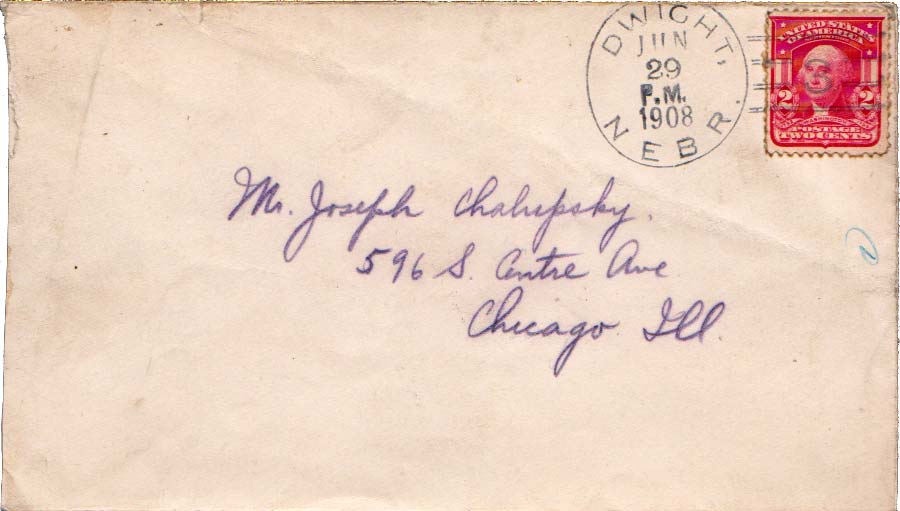 DWIGHT,
JUN
29
P.M.
1908
NEBR.
UNITED STATES
OF AMERICA
2 2
WASHINGTON
POSTAGE
TWO CENTS
3
Mr. Joseph Chalupsky.
596 S. Centre Ave
Chicago Ill.